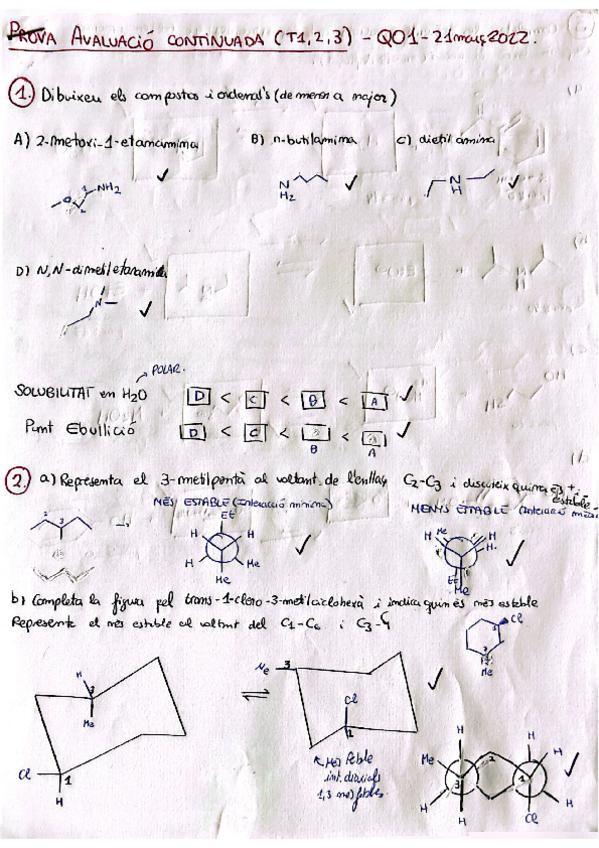 PROVA AVALUACIÓ CONTINUADA (T1,2,3) - QO1 - 21 març 2022.
1. Dibuixeu els compostos i ordena'ls (de menor a major)
A) 2-metoxi-1-etanamina B) n-butilamina C) dietil amina
NH2
O
1
2
N
H2
N
H
D) N,N-dimetiletanamina
N
POLAR.
SOLUBILITAT en H2O D < C < B < A
Punt Ebullició D < C < B < A
2. a) Representa el 3-metilpentà al voltant de l'enllaç C2-C3 i discuteix quina és + estable
MÉS ESTABLE (Interacció mínima) MENYS ESTABLE
2 3
Et
H H
H Me
Me
H Me H
H.
Et
Me
b) Completa la figura pel trans-1-cloro-3-metilciclohexà i indica quin és més estable
Represente el més estable al voltant del C1-C6 i C3-C4
Cl
1
3
Me
H
3
Me
Cl 1
H
Me 3
Cl
2
Més feble
int. diaxials
1,3 més febles
H H
Me 2 H
3 1
H H
H Cl